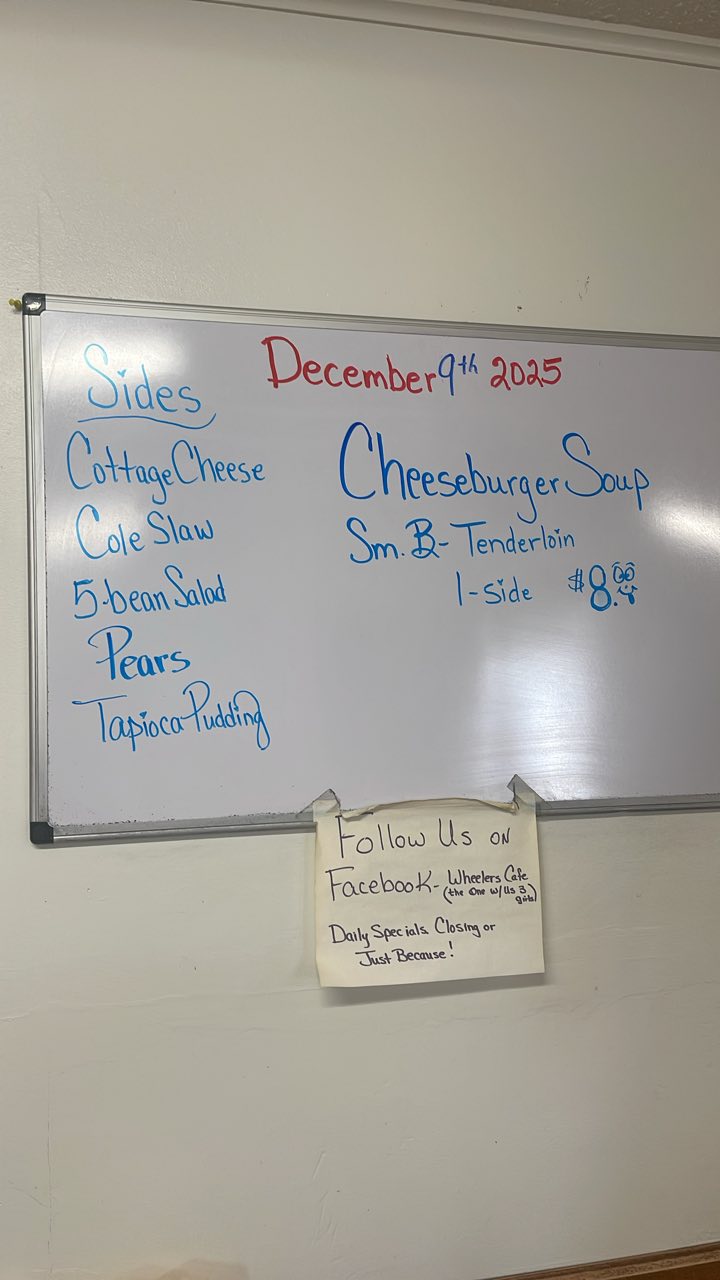 December 9th 2025
Sides
Cottage Cheese
Cole Slaw
5-bean Salad
Pears
Tapioca Pudding
Cheeseburger Soup
Sm. B- Tenderloin
1-side $8.00
Follow Us on
Facebook- Wheelers Cafe
(the one w/us 3 girls)
Daily Specials. Closing or
Just Because!